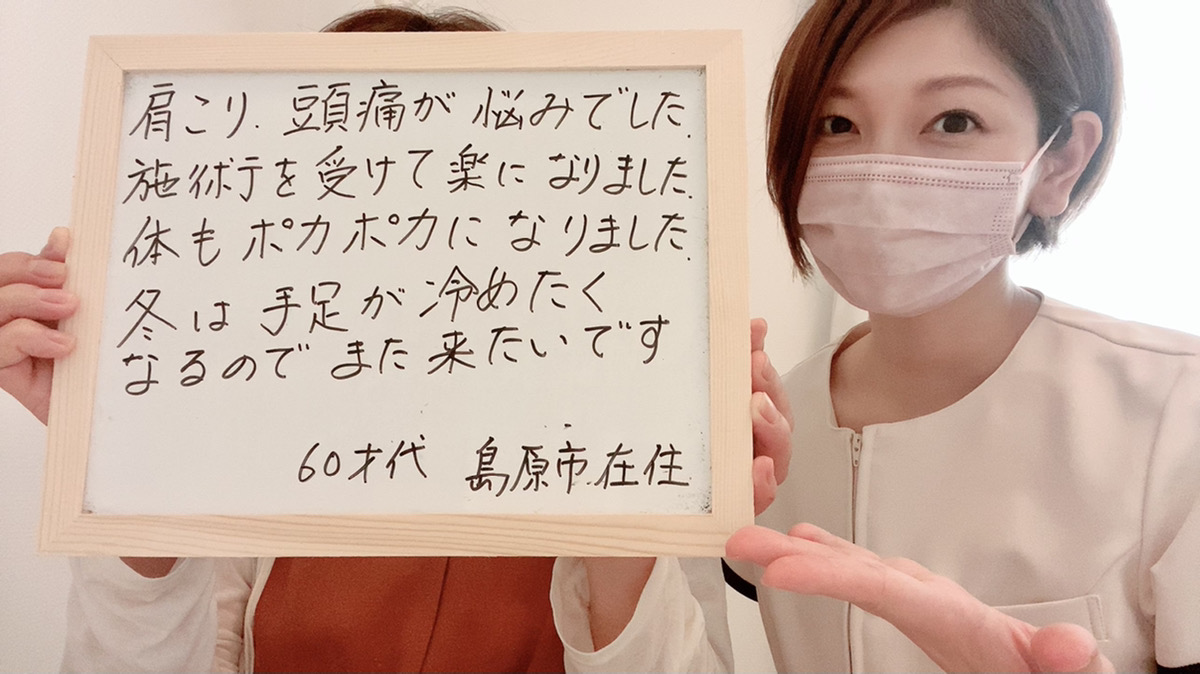 肩こり.頭痛が悩みでした.
施術庁を受けて楽になりました.
体もポカポカになりました.
冬は手足が冷めたく
なるのでまた来たいです
60才代 島原市在住